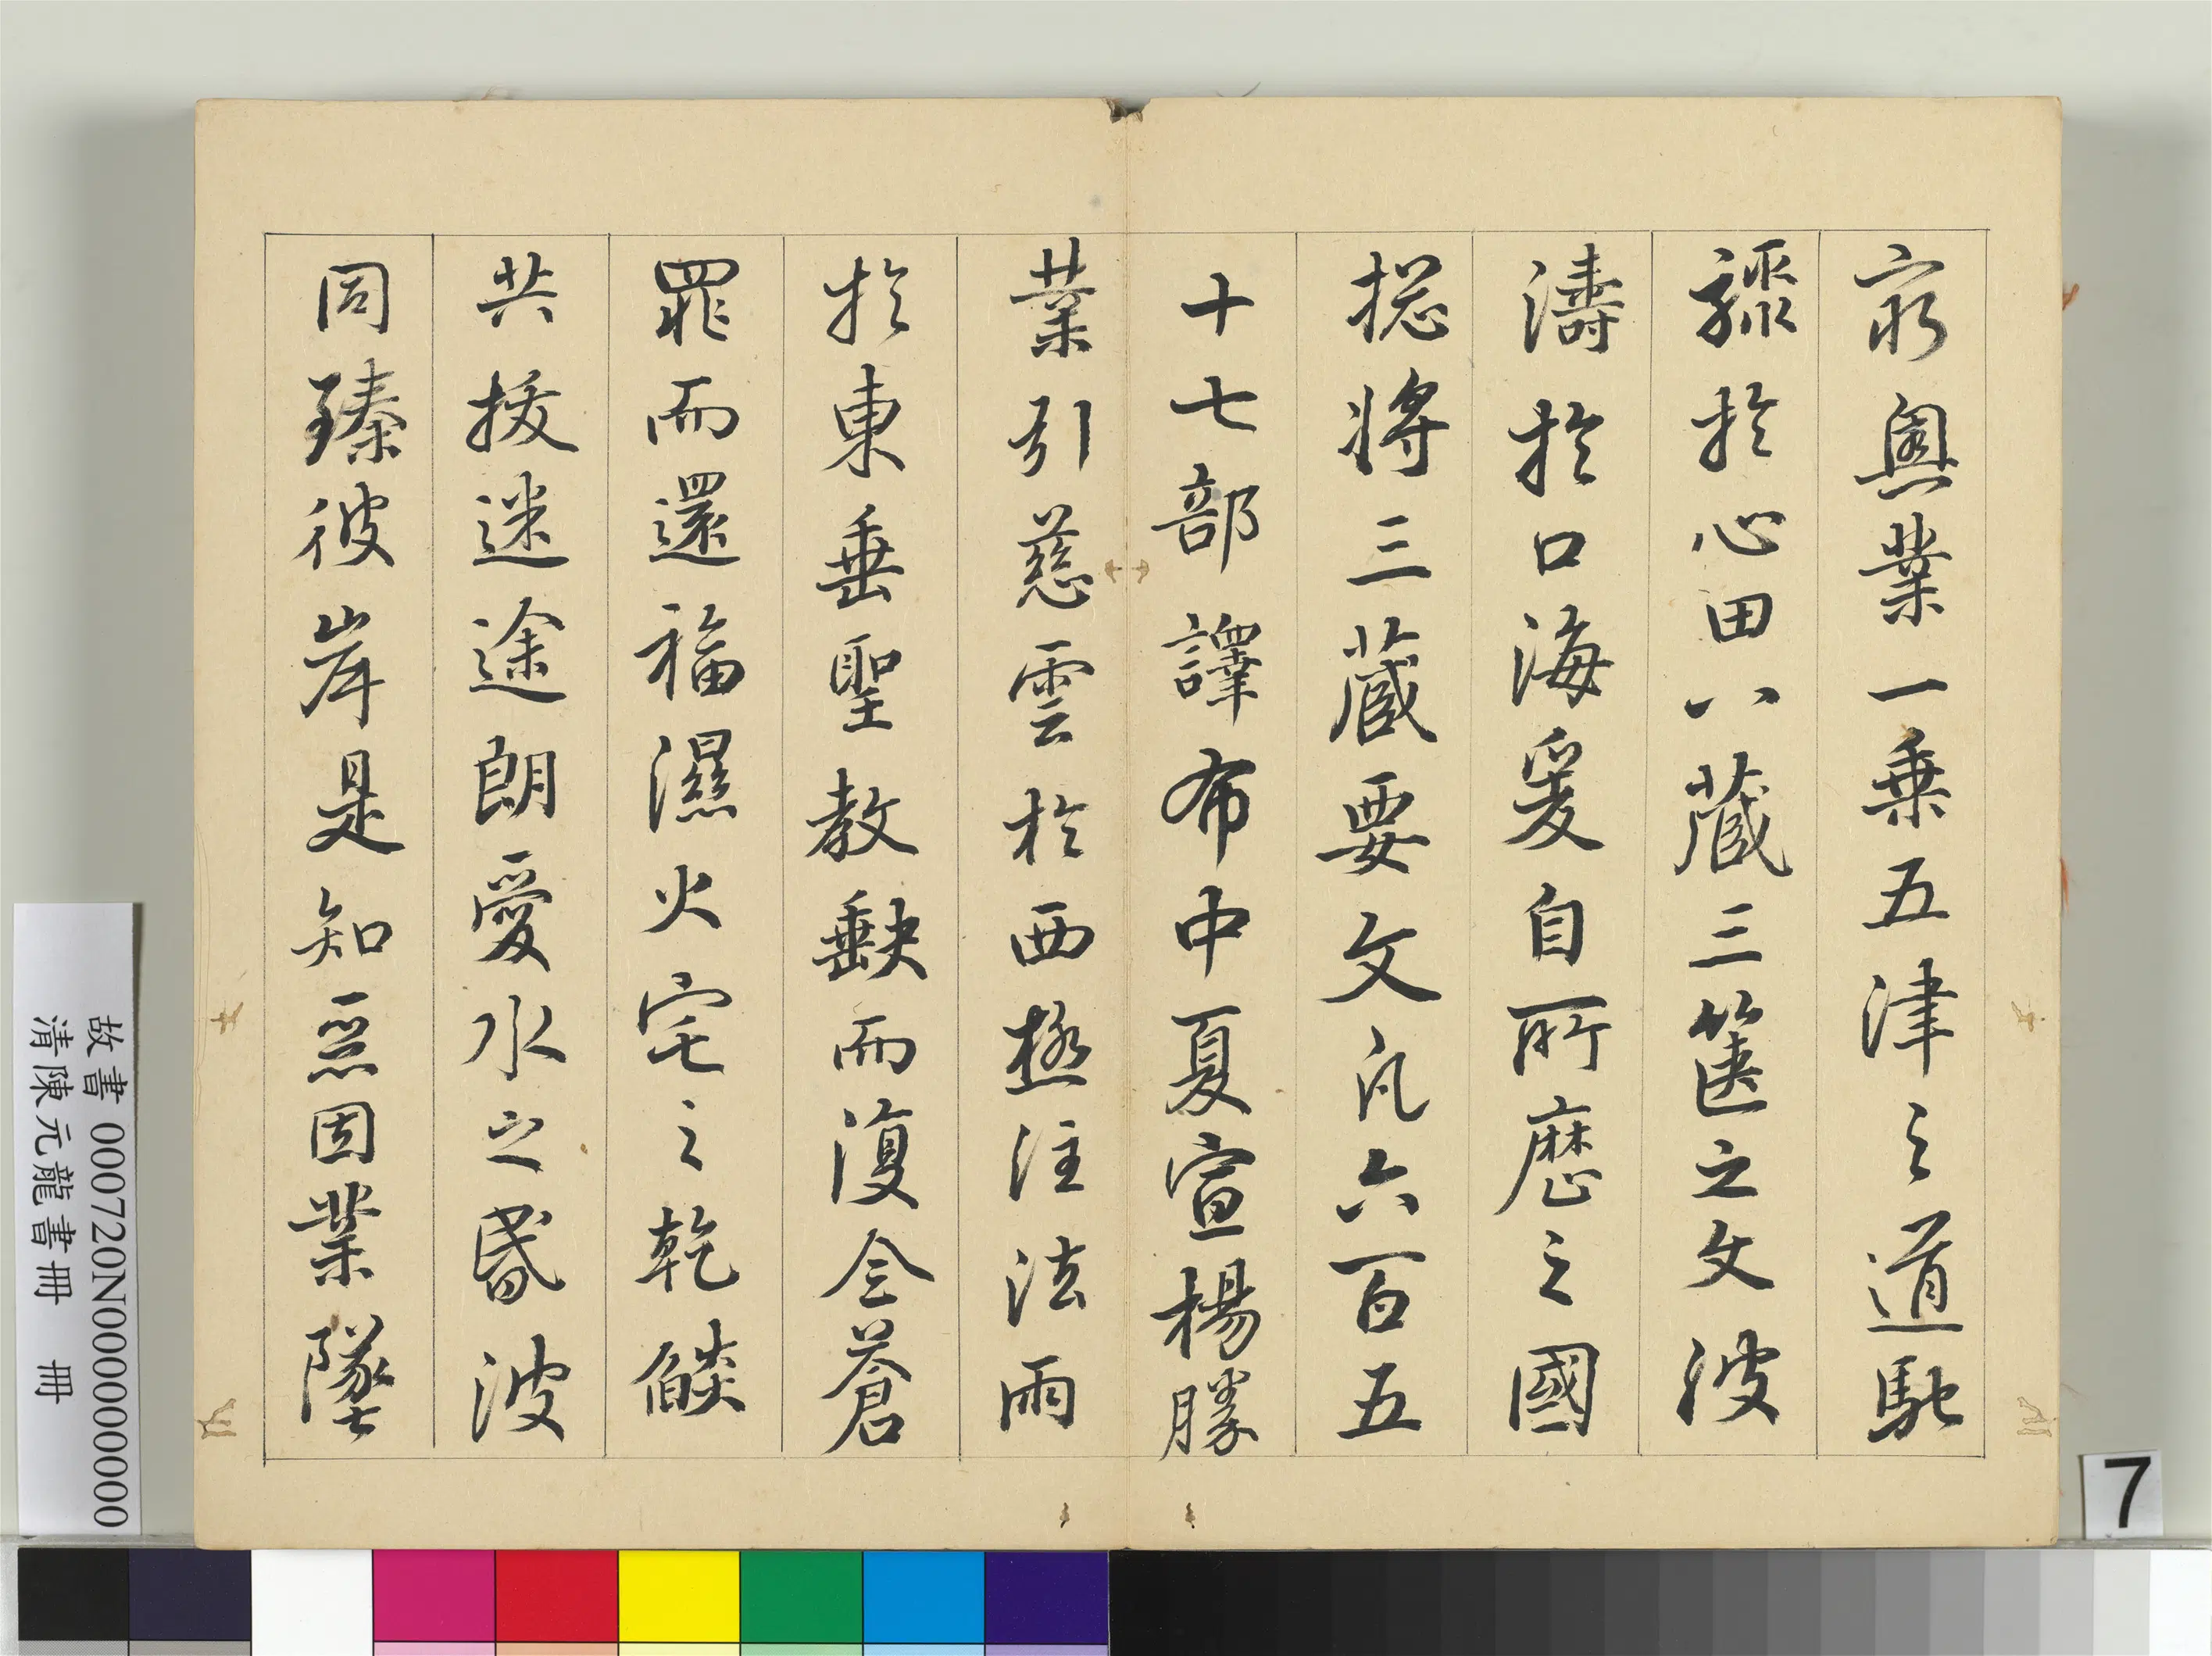 窮奧業一乘五津之道馳
驟於心田八藏三篋之文波
濤於口海爰自所歷之國
捴將三藏要文凡六百五
十七部譯布中夏宣楊勝
業引慈雲於西極注法雨
於東垂聖教缺而復全蒼
罪而還福濕火宅之乾燄
共拔迷途朗愛水之昏波
同臻彼岸是知惡因業墜
故書 000720N000000000
清陳元龍書冊 冊
7